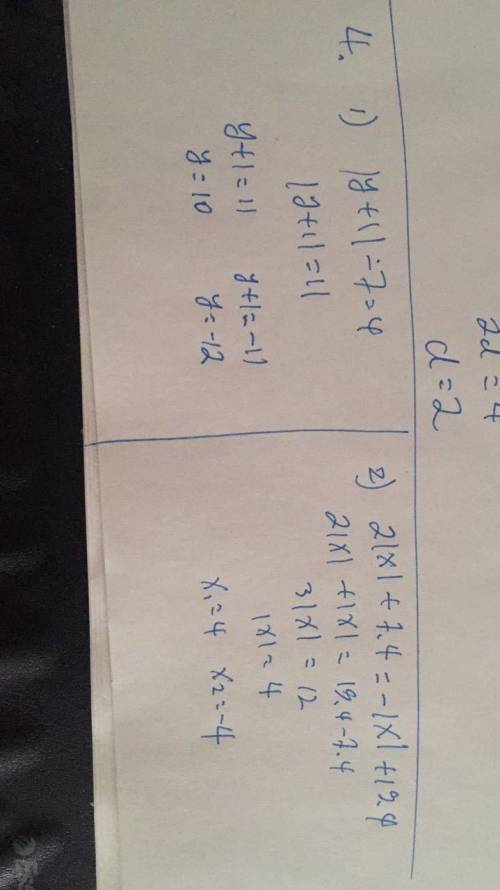 2d = 4
d = 2
4. 1) |y+1| - 7 = 4
|y+1| = 11
y+1 = 11 y+1 = -11
y = 10 y = -12
2) 2|x| + 7.4 = -|x| + 19.4
2|x| + |x| = 19.4 - 7.4
3|x| = 12
|x| = 4
x₁ = 4 x₂ = -4